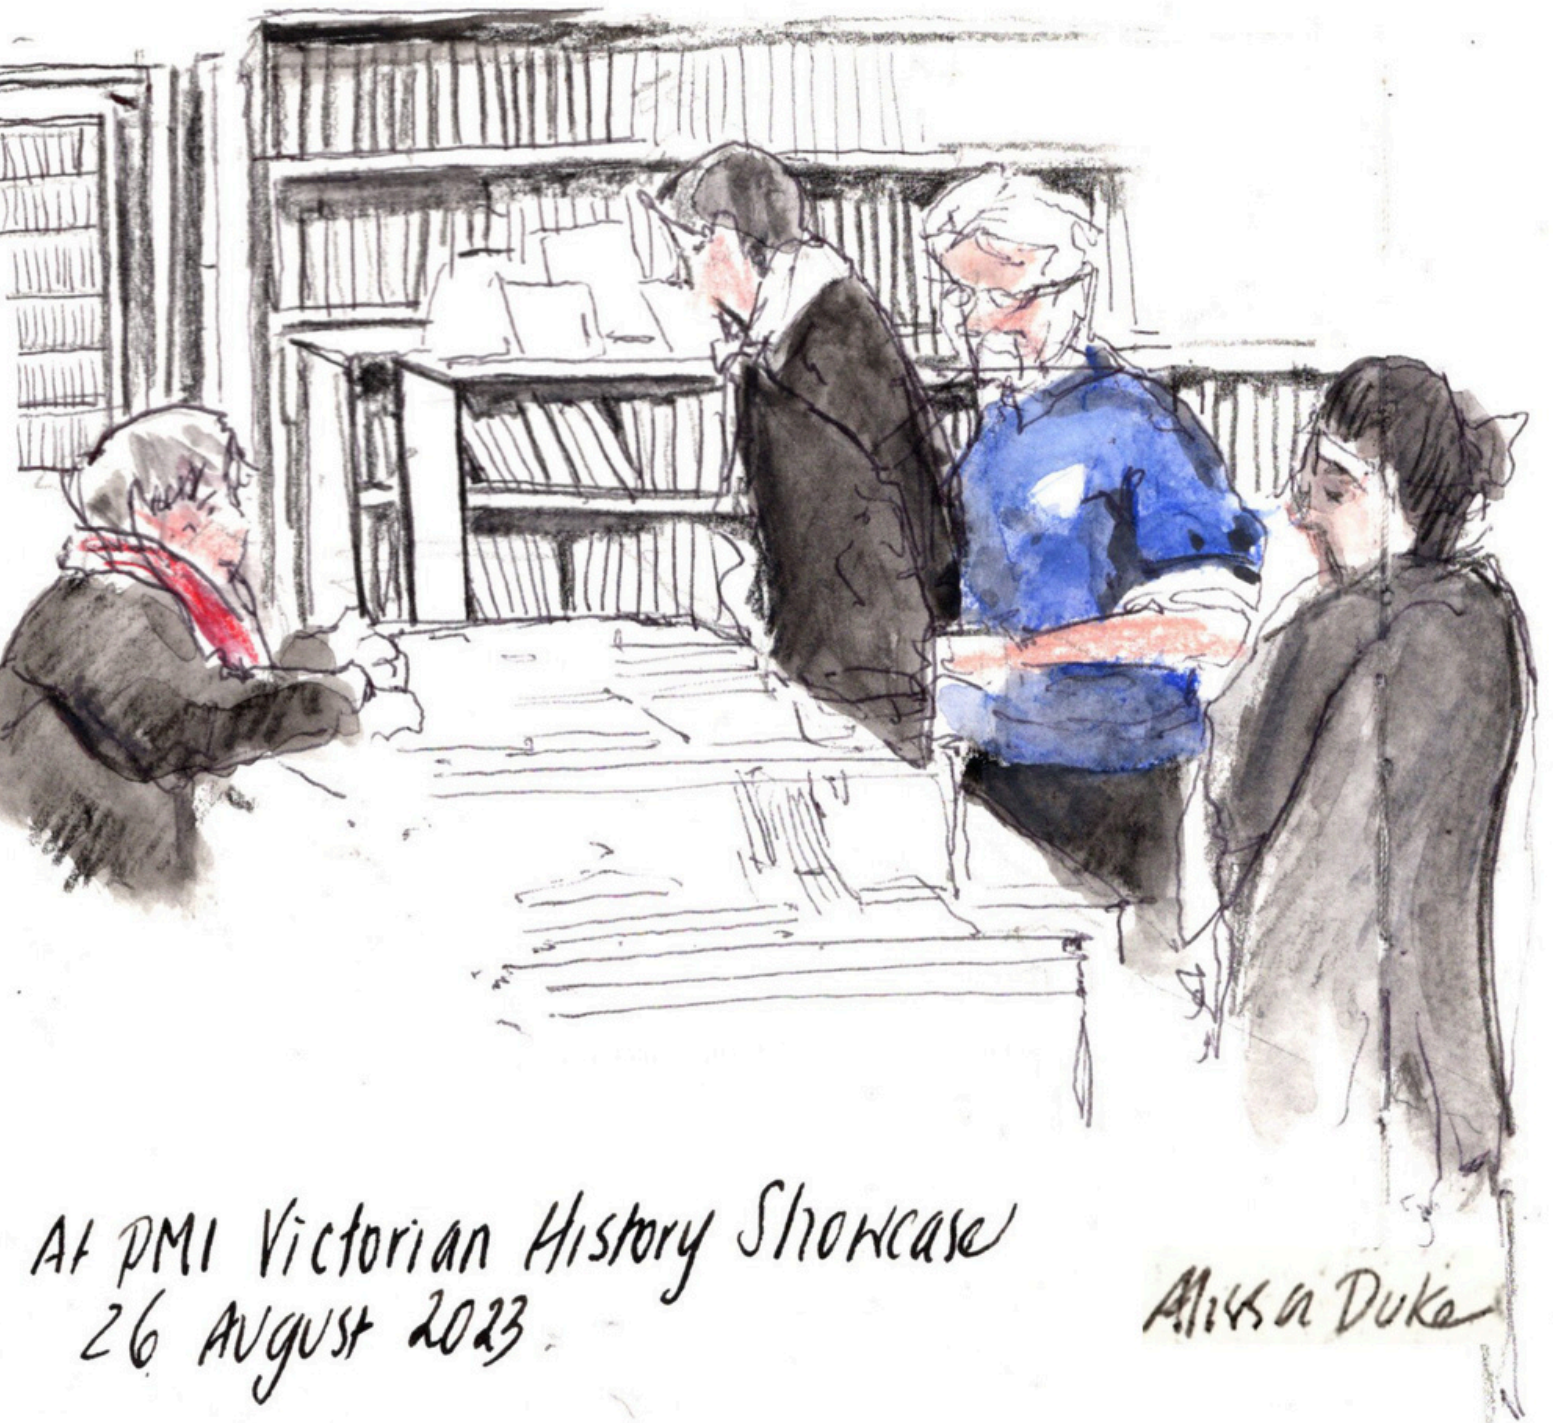 At PMI Victorian History Showcase
26 August 2023.
Alissa Duke